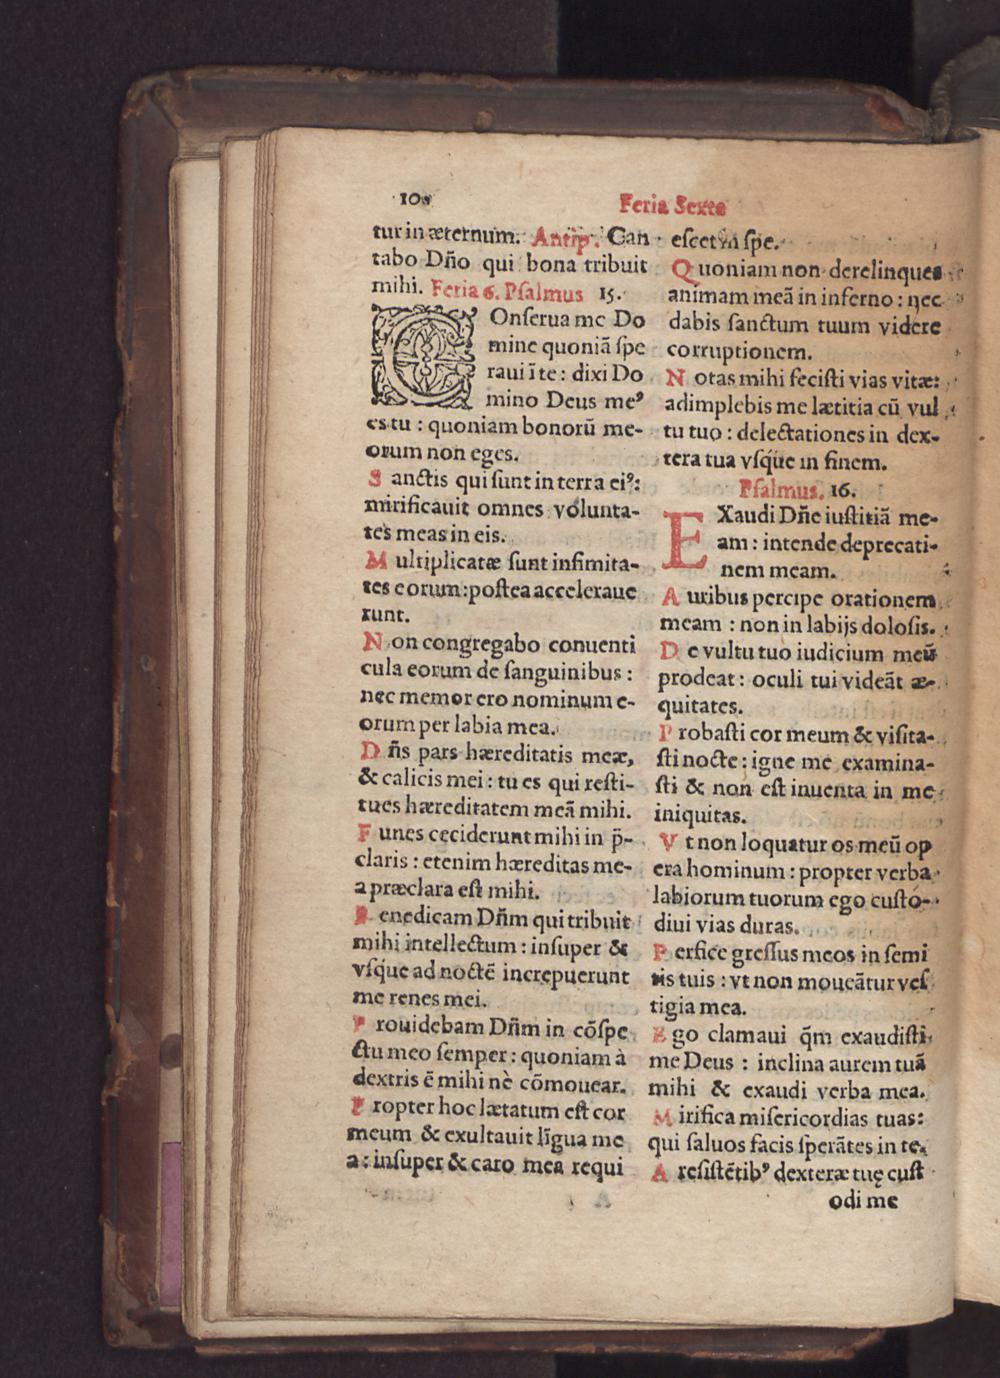 10
Feria Sexta
tur in æternum. Antip. Can
tabo Dño qui bona tribuit
mihi. Feria 6. Psalmus 15.
COnserua me Do
mine quoniã spe
raui ĩ te: dixi Do
mino Deus meꝰ
es tu : quoniam bonorũ me-
orum non eges.
Sanctis qui sunt in terra eiꝰ:
mirificauit omnes volunta-
tes meas in eis.
Multiplicatæ sunt infimita-
tes eorum: postea acceleraue
runt.
Non congregabo conuenti
cula eorum de sanguinibus :
nec memor ero nominum e-
orum per labia mea.
Dñs pars hæreditatis meæ,
& calicis mei : tu es qui resti-
tues hæreditatem meã mihi.
Funes ceciderunt mihi in p̃-
claris : etenim hæreditas me-
a præclara est mihi.
Benedicam Dñm qui tribuit
mihi intellectum : insuper &
vsq́ue ad noctẽ increpuerunt
me renes mei.
Prouidebam Dñm in cõspe
ctu meo semper: quoniam à
dextris ẽ mihi nè cõmouear.
Propter hoc lætatum est cor
meum & exultauit lĩgua me
a: insuper & caro mea requi
escet in spe.
Quoniam non derelinques
animam meã in inferno : nec
dabis sanctum tuum videre
corruptionem.
Notas mihi fecisti vias vitæ:
adimplebis me lætitia cũ vul
tu tuo : delectationes in dex-
tera tua vsq́ue in finem.
Psalmus. 16.
EXaudi Dñe iustitiã me-
am : intende deprecati-
nem meam.
Auribus percipe orationem
meam : non in labijs dolosis.
De vultu tuo iudicium meũ
prodeat : oculi tui videãt æ-
quitates.
Probasti cor meum & visita-
sti nocte : igne me examina-
sti & non est inuenta in me
iniquitas.
Vt non loquatur os meũ op
era hominum : propter verba
labiorum tuorum ego custo-
diui vias duras.
Perfice gressus meos in semi
tis tuis : vt non moueãtur ves
tigia mea.
Ego clamaui q̃m exaudisti
me Deus : inclina aurem tuã
mihi & exaudi verba mea.
Mirifica misericordias tuas:
qui saluos facis sperãtes in te.
A resistẽtibꝰ dexteræ tuę cust
odi me